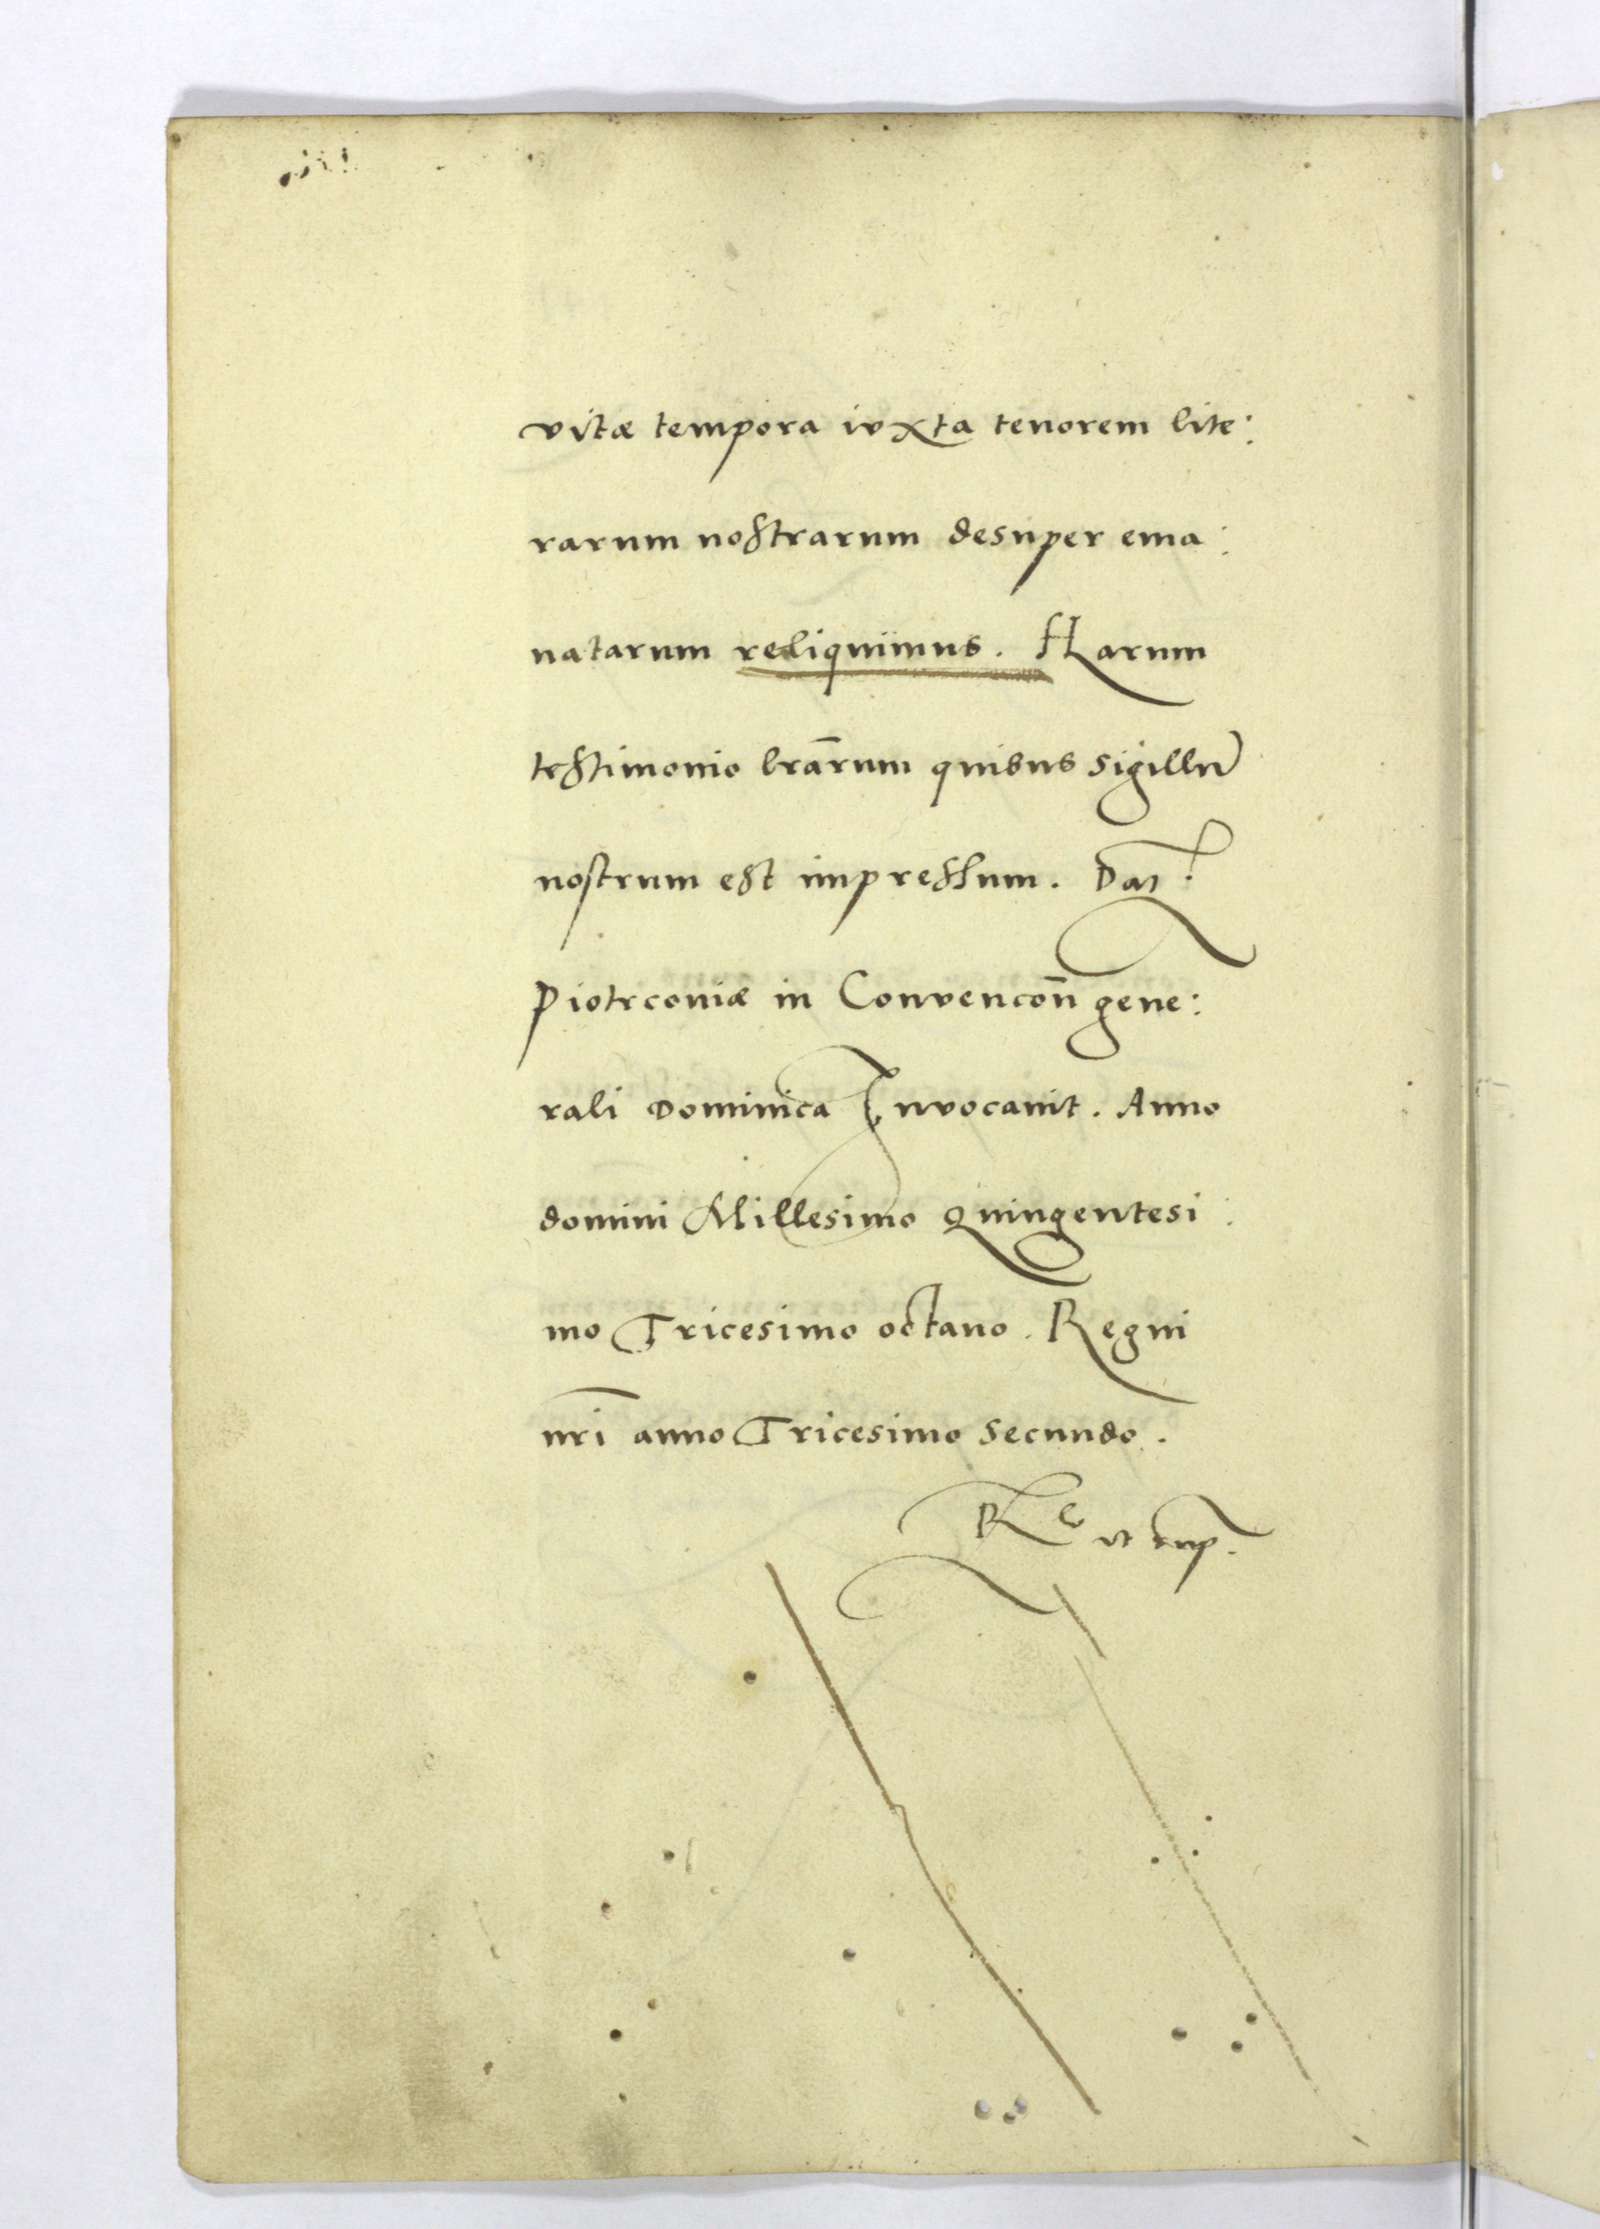 vitæ tempora iuxta tenorem lite:
rarum nostrarum desuper ema:
natarum reliquimus. Harum
testimonio lr̄arum quibus sigillū
nostrum est impressum. Dat:
Piotrcoviæ in Convencōn gene:
rali Dominica Invocavit. Anno
domini Millesimo Quingentesi:
mo Tricesimo octavo. Regni
nr̄i anno Tricesimo secundo.
Rᵉ ut sup.